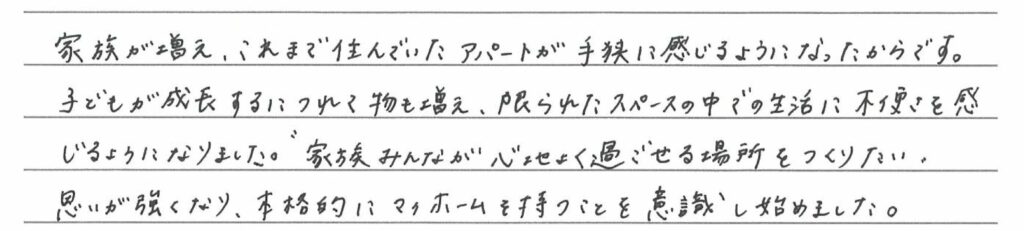 家族が増え、これまで住んでいたアパートが手狭に感じるようになったからです。
子どもが成長するにつれて物も増え、限られたスペースの中での生活に不便さを感
じるようになりました。〝家族みんなが心地よく過ごせる場所をつくりたい、
思いが強くなり、本格的にマイホームを持つことを意識し始めました。